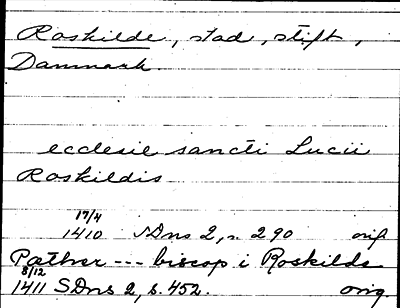 Roskilde, stad, stift,
Danmark.
ecclesie sancti Lucii
Roskildis
17/4
1410 SDns 2, s. 290 orig
Pæther --- biscop i Roskilde
8/12
1411 SDns 2, s. 452. orig.